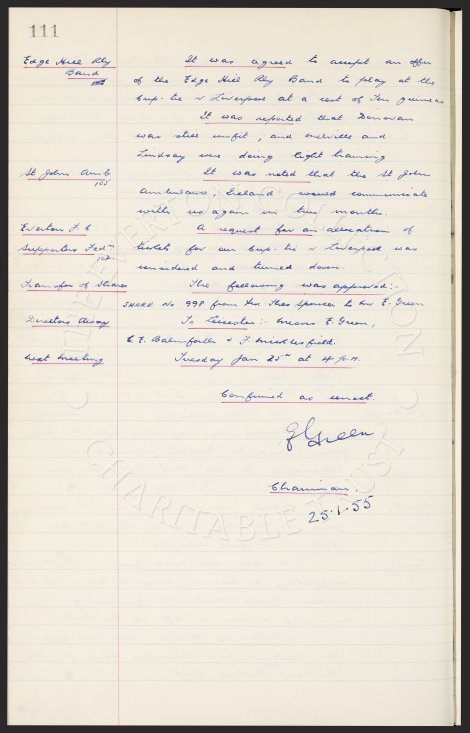 111
Edge Hill Rly Band
It was agreed to accept an offer
of the Edge Hill Rly Band to play at the
Cup-tie v Liverpool at a cost of Ten guineas
It was reported that Donovan
was still unfit, and Melville and
Lindsay were doing light training
St John Amb
105
It was noted that the St John
Ambulance, Ireland would communicate
with us again in two months.
Everton F C
Supporters Fedn
102
A request for an allocation of
tickets for our Cup-tie v Liverpool was
considered and turned down.
Transfer of Shares
The following was approved:-
SHARE No 998 from Mr Thos Spencer to Mr E. Green
Directors Away
To Leicester:- Messrs E. Green,
C. E. Balmforth & F. Micklesfield.
Next Meeting
Tuesday Jan 25th at 4 p.m.
Confirmed as correct.
E Green
Chairman.
25-1-55
THE EVERTON COLLECTION
CHARITABLE TRUST